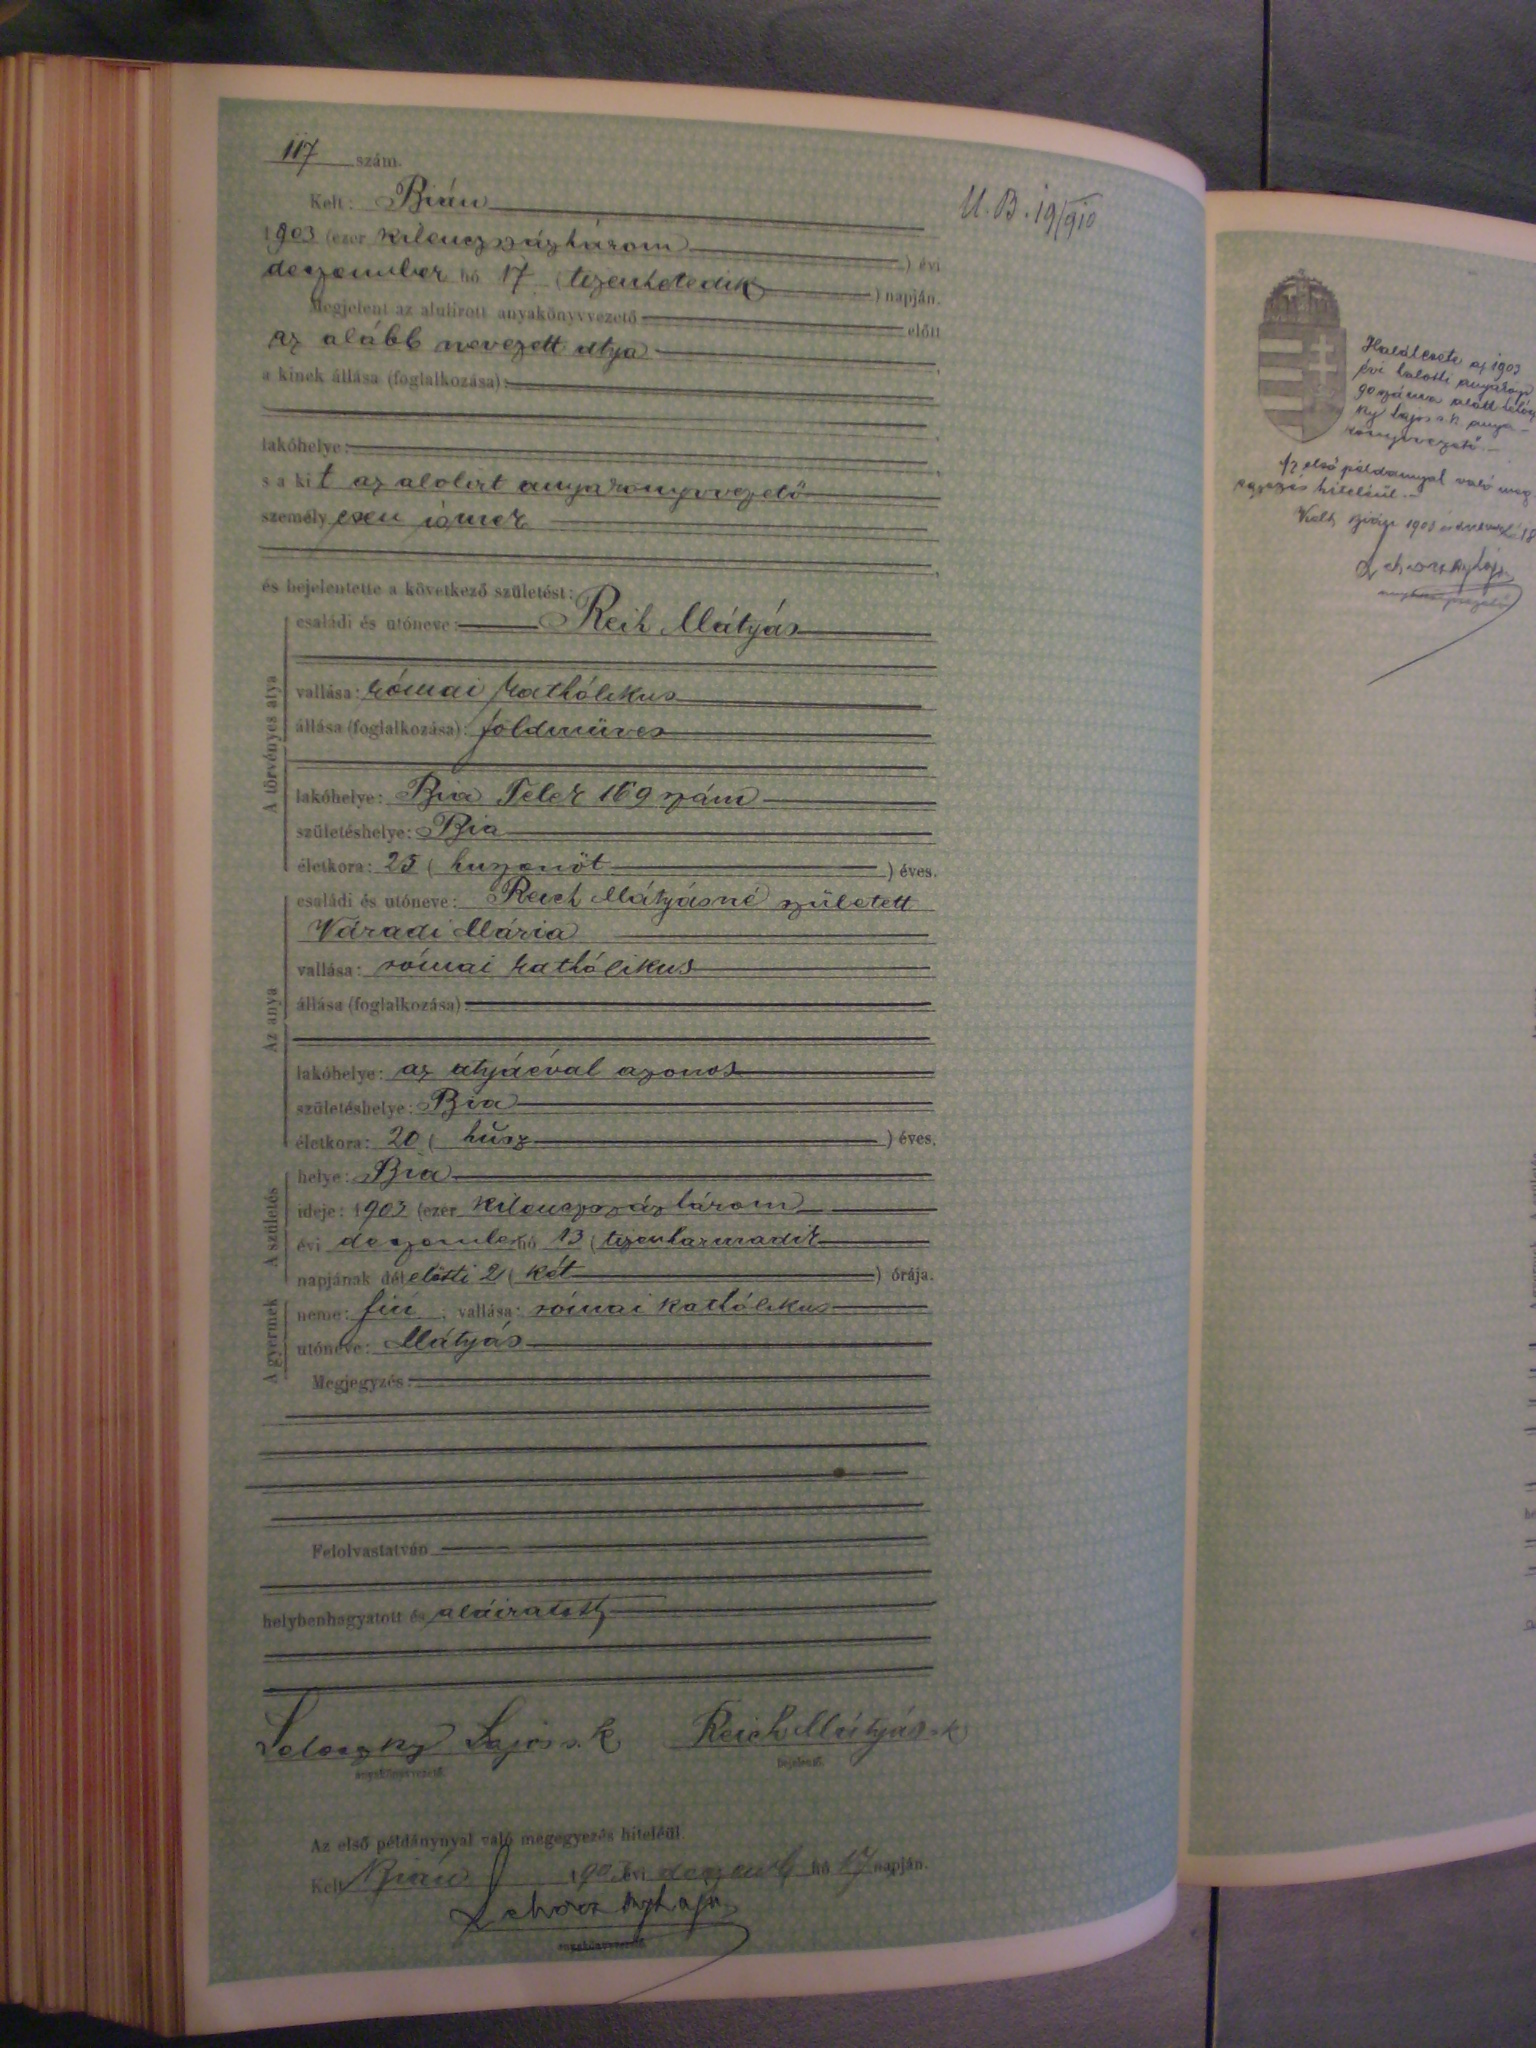 117 szám.
Kelt: Bián
1903 (ezer kilenczszázhárom) évi
deczember hó 17 (tizenhetedik) napján.
Megjelent az alulirott anyakönyvvezető előtt
az alább nevezett atya
a kinek állása (foglalkozása):
lakóhelye:
s a kit az alolirt anyakönyvvezető
személyesen ismer
és bejelentette a következő születést:
A törvényes atya
családi és utóneve: Reih Mátyás
vallása: római kathólikus
állása (foglalkozása): földmüves
lakóhelye: Bia Telek 169 szám
születéshelye: Bia
életkora: 25 (huszonöt) éves.
Az anya
családi és utóneve: Reich Mátyásné született
Váradi Mária
vallása: római kathólikus
állása (foglalkozása):
lakóhelye: az atyáéval azonos
születéshelye: Bia
életkora: 20 (húsz) éves.
A születés
helye: Bia
ideje: 1903 (ezer kilenczszázhárom
évi deczember hó 13 (tizenharmadik
napjának délelőtti 2 (két) órája.
A gyermek
neme: fiú; vallása: római kathólikus
utóneve: Mátyás
Megjegyzés:
Felolvastatván
helybenhagyatott és aláiratott
Lajos s. k. Reich Mátyás s. k.
anyakönyvvezető. bejelentő.
Az első példánynyal való megegyezés hiteléül.
Kelt Bián 1903 évi deczemb hó 17 napján.
anyakönyvvezető
U. B. 19/910
Halálesete az 1903
évi halotti anyakönyv
90 száma alatt
Lajos s. k. anya-
könyvvezető.-
Az első példánnyal való meg
egyezés hiteléül.-
Kelt Bián 1903 18